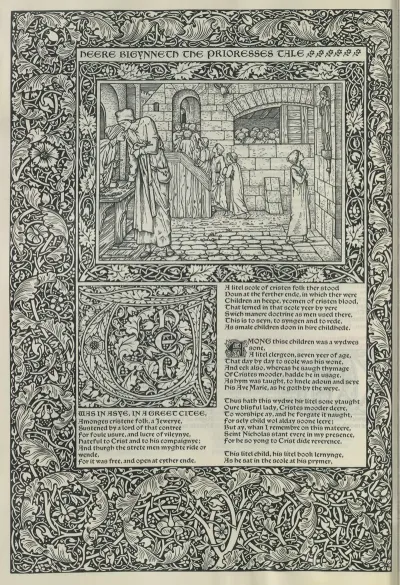 HEERE BIGYNNETH THE PRIORESSES TALE
THER
WAS IN ASYE, IN A GREET CITEE,
Amonges cristene folk, a Jewerye,
Sustened by a lord of that contree
For foule usure, and lucre of vileynye,
Hateful to Crist and to his compaignye;
And thurgh the strete men myghte ride or
wende,
For it was free, and open at eyther ende.
A litel scole of cristen folk ther stood
Doun at the ferther ende, in which ther were
Children an heepe, ycomen of cristen blood,
That lerned in that scole yeer by yere
Swich manere doctrine as men used there,
This is to seyn, to syngen and to rede,
As smale children doon in hire childhede.
AMONG thise children was a wydwes
sone,
A litel clergeon, seven yeer of age,
That day by day to scole was his wone,
And eek also, whereas he saugh thymage
Of Cristes mooder, hadde he in usage,
As hym was taught, to knele adoun and seye
his Ave Marie, as he goth by the weye.
Thus hath this wydwe hir litel sone ytaught
Oure blisful lady, Cristes mooder deere,
To worshipe ay, and he forgate it naught,
For sely child wol alday soone leere;
But ay, whan I remembre on this mateere,
Seint Nicholas stant evere in my presence,
For he so yong to Crist dide reverence.
This litel child, his litel book lernynge,
As he sat in the scole at his prymer,